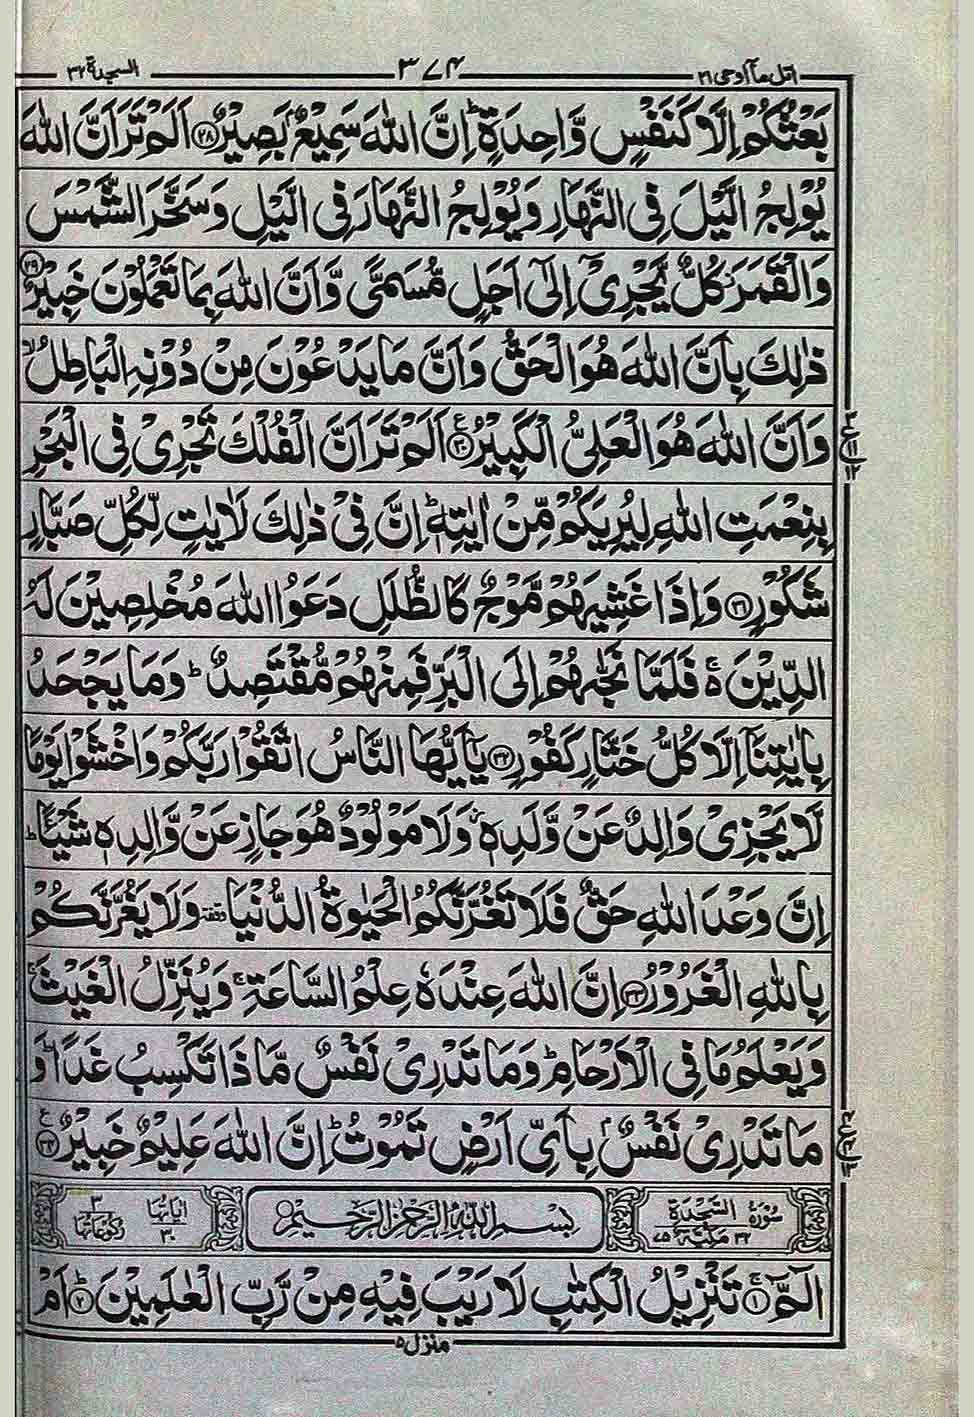 اتل مآ اوحی ۲۱ ۳۷۴ السجدة ۳۲
بَعْثُكُمْ اِلَّا كَنَفْسٍ وَّاحِدَةٍ ؕ اِنَّ اللّٰهَ سَمِيْعٌۢ بَصِيْرٌ ﴿۲۸﴾ اَلَمْ تَرَ اَنَّ اللّٰهَ
يُوْلِجُ الَّيْلَ فِى النَّهَارِ وَيُوْلِجُ النَّهَارَ فِى الَّيْلِ وَسَخَّرَ الشَّمْسَ
وَالْقَمَرَ ؗ كُلٌّ يَّجْرِىْۤ اِلٰٓى اَجَلٍ مُّسَمًّى وَّاَنَّ اللّٰهَ بِمَا تَعْمَلُوْنَ خَبِيْرٌ ﴿۲۹﴾
ذٰلِكَ بِاَنَّ اللّٰهَ هُوَ الْحَقُّ وَاَنَّ مَا يَدْعُوْنَ مِنْ دُوْنِهِ الْبَاطِلُ ۙ
وَاَنَّ اللّٰهَ هُوَ الْعَلِىُّ الْكَبِيْرُ ﴿۳۰﴾ ع اَلَمْ تَرَ اَنَّ الْفُلْكَ تَجْرِىْ فِى الْبَحْرِ
بِنِعْمَتِ اللّٰهِ لِيُرِيَكُمْ مِّنْ اٰيٰتِهٖ ؕ اِنَّ فِىْ ذٰلِكَ لَاٰيٰتٍ لِّكُلِّ صَبَّارٍ
شَكُوْرٍ ﴿۳۱﴾ وَاِذَا غَشِيَهُمْ مَّوْجٌ كَالظُّلَلِ دَعَوُا اللّٰهَ مُخْلِصِيْنَ لَهُ
الدِّيْنَ ۚ۬ فَلَمَّا نَجّٰٮهُمْ اِلَى الْبَرِّ فَمِنْهُمْ مُّقْتَصِدٌ ؕ وَمَا يَجْحَدُ
بِاٰيٰتِنَاۤ اِلَّا كُلُّ خَتَّارٍ كَفُوْرٍ ﴿۳۲﴾ يٰۤاَيُّهَا النَّاسُ اتَّقُوْا رَبَّكُمْ وَاخْشَوْا يَوْمًا
لَّا يَجْزِىْ وَالِدٌ عَنْ وَّلَدِهٖ ؗ وَلَا مَوْلُوْدٌ هُوَ جَازٍ عَنْ وَّالِدِهٖ شَيْـًٔا ؕ
اِنَّ وَعْدَ اللّٰهِ حَقٌّ فَلَا تَغُرَّنَّكُمُ الْحَيٰوةُ الدُّنْيَا وقفة وَلَا يَغُرَّنَّكُمْ
بِاللّٰهِ الْغَرُوْرُ ﴿۳۳﴾ اِنَّ اللّٰهَ عِنْدَهٗ عِلْمُ السَّاعَةِ ۚ وَيُنَزِّلُ الْغَيْثَ ۚ
وَيَعْلَمُ مَا فِى الْاَرْحَامِ ؕ وَمَا تَدْرِىْ نَفْسٌ مَّاذَا تَكْسِبُ غَدًا ؕ وَ
مَا تَدْرِىْ نَفْسٌۢ بِاَىِّ اَرْضٍ تَمُوْتُ ؕ اِنَّ اللّٰهَ عَلِيْمٌ خَبِيْرٌ ﴿۳۴﴾ ع
سُوْرَةُ السَّجْدَةِ ۳۲ مَكِّيَّةٌ ۷۵ بِسْمِ اللّٰهِ الرَّحْمٰنِ الرَّحِيْمِ اٰيَاتُهَا ۳۰ رُكُوْعَاتُهَا ۳
الٓمّٓ ۚ ﴿۱﴾ تَنْزِيْلُ الْكِتٰبِ لَا رَيْبَ فِيْهِ مِنْ رَّبِّ الْعٰلَمِيْنَ ؕ ﴿۲﴾ اَمْ
منزل ۵